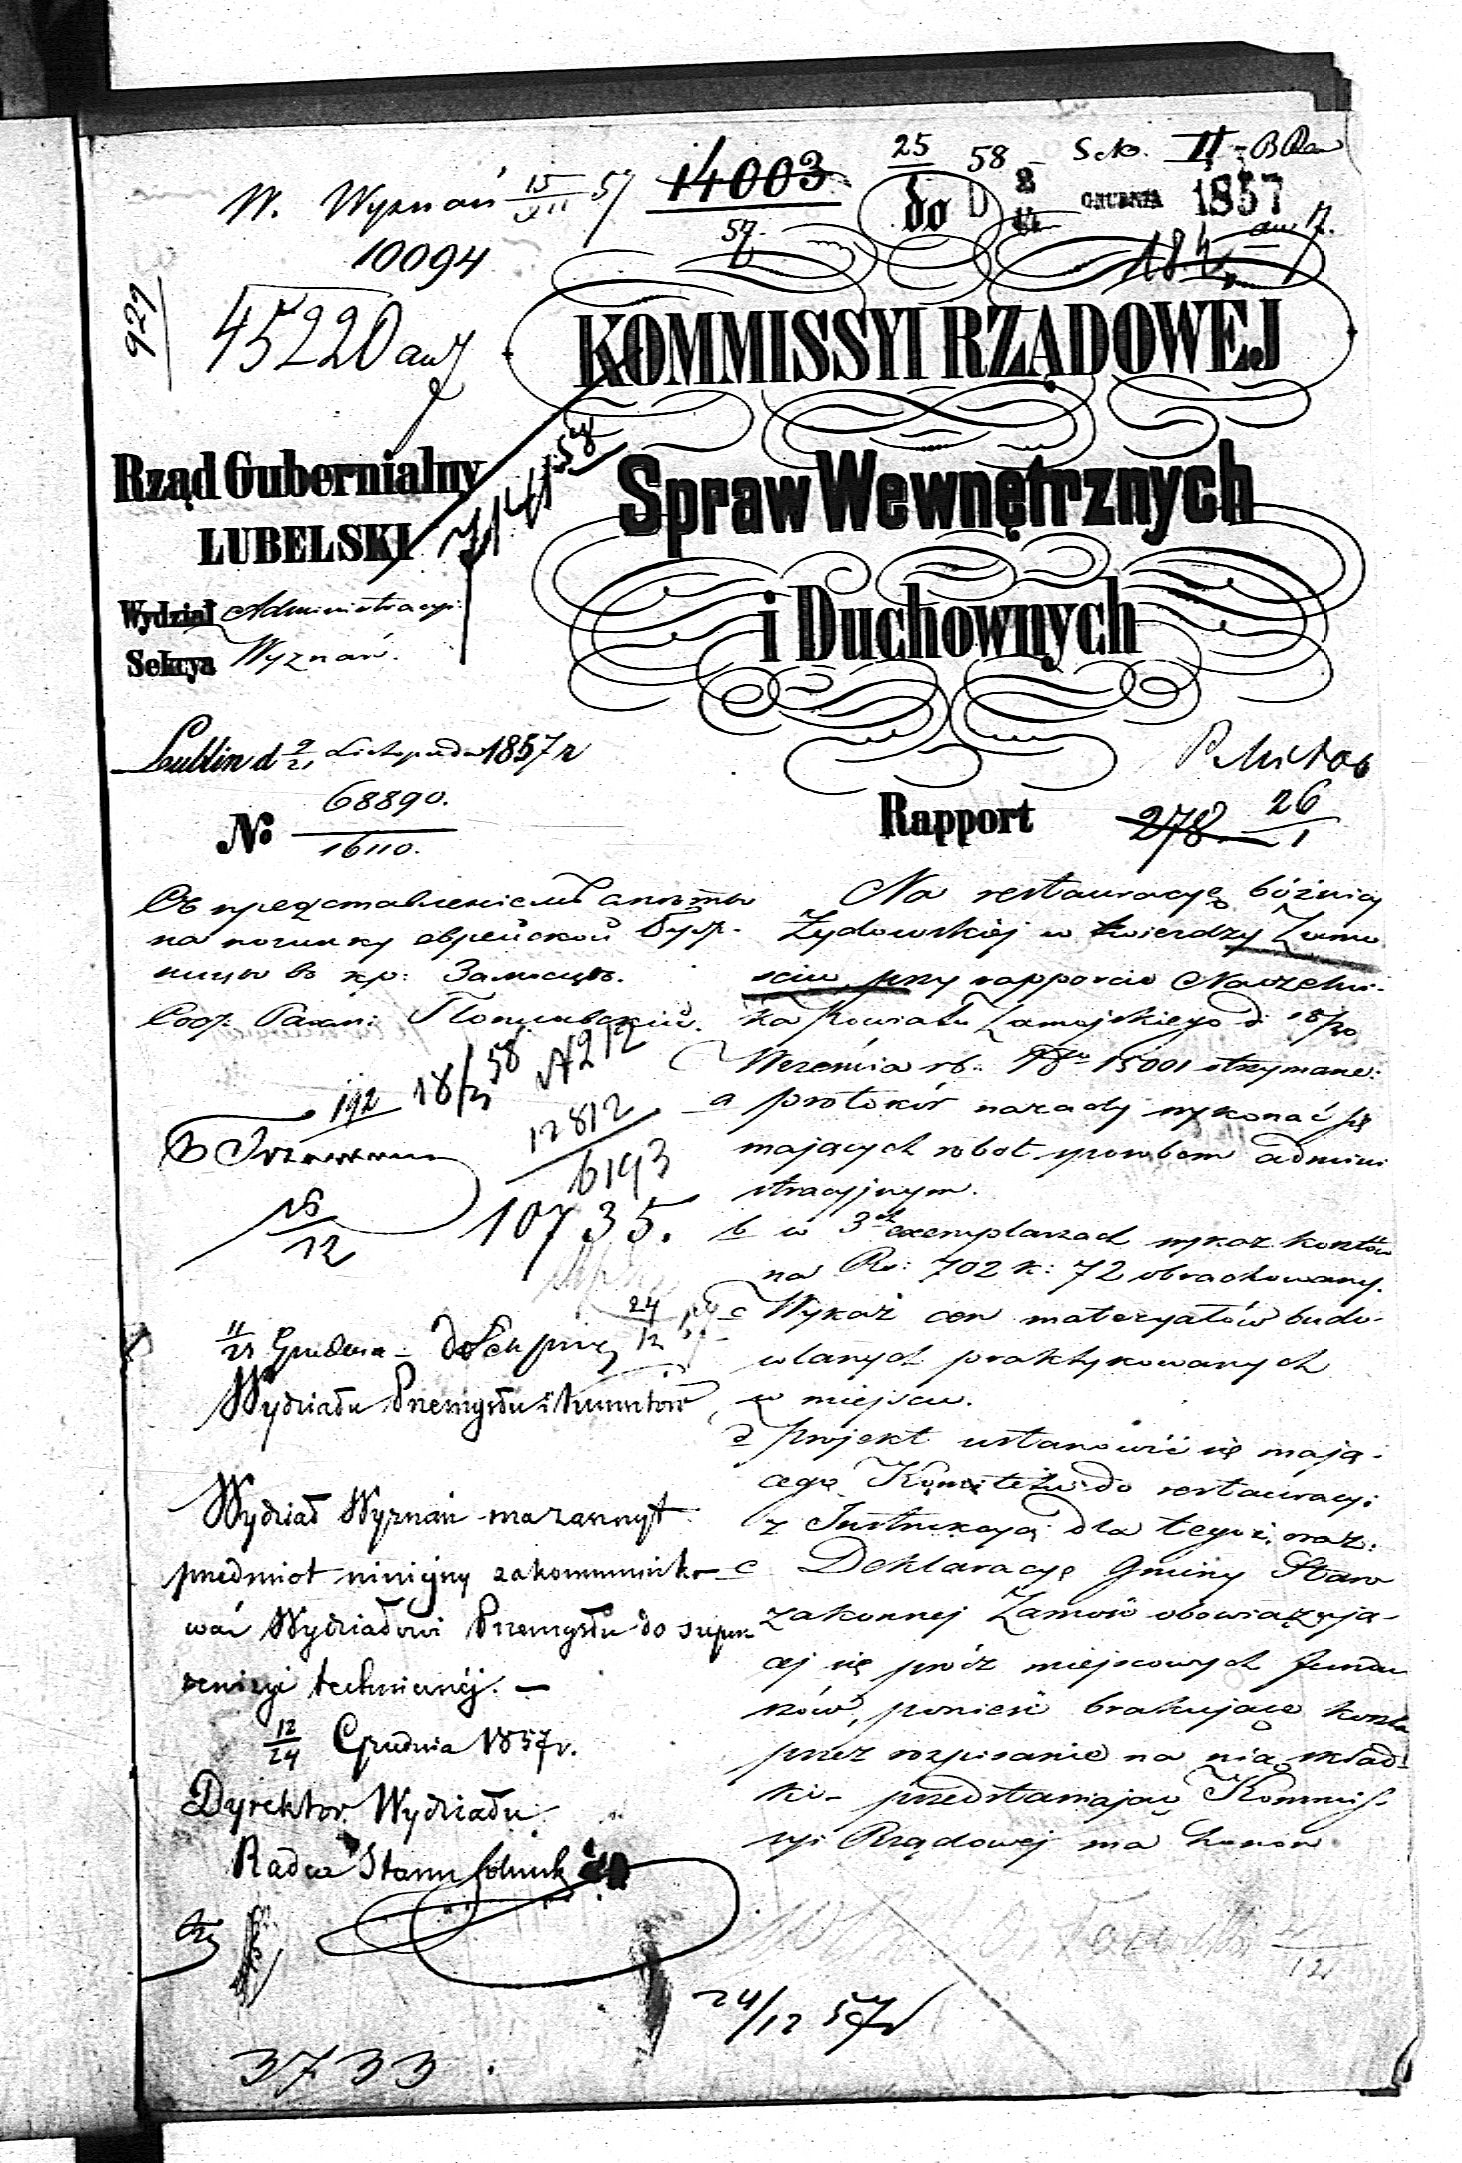 W. Wyznań 15/XII 57
10094
14003
57
25 58 - Sek. II
do D 2 GRUDNIA 1857
184
929
45220
KOMMISSYI RZĄDOWEJ
Spraw Wewnętrznych
i Duchownych
Rząd Gubernialny
LUBELSKI
Wydział Administracyi:
Sekcya Wyznań.
Lublin d 9/21 Listopada 1857 r
№ 68890.
16110.
Rapport
278. 26/1
Съ представленіемъ смѣты
на починку еврейской Буж-
ницы въ кр: Замосцѣ.
Na restauracyę bóżnicy
Żydowskiéj w twierdzy Zamo
ściu przy rapporcie Naczelni-
ka Powiatu Zamojskiego d: 18/30
Września rb: № 15001 otrzymane:
a protokół narady wykonać się
mających robot sposobem admini
stracyjnym.
b w 3ch exemplarzach wykaz kosztów
na Rs: 702 k: 72 obrachowany.
c Wykaz cen materyałów budo-
wlanych praktykowanych
w miejscu.
d projekt ustanowić się mają-
cego Komitetu do restauracyi
z Instrukcyą dla tegoż, oraz:
e Deklaracyę Gminy Staro
zakonnej Zamość obowiązują-
cej się prócz miejscowych fundu
szów, ponieść brakujące koszta
przez rozpisanie na nią skład-
ki - przedstawiając Kommis-
syi Rządowej ma honor
18/3 58 № 212
12812
6193
10735.
18/12
24/12
11/23 Grudnia -
Wydziału Przemysłu i Kunsztów
Wydział Wyznań ma zaszczyt
przedmiot niniejszy zakommuniko-
wać Wydziałowi Przemysłu do super
rewizyi technicznéj. -
12/24 Grudnia 1857 r.
Dyrektor Wydziału
Radca Stanu
24/12 57
3733.